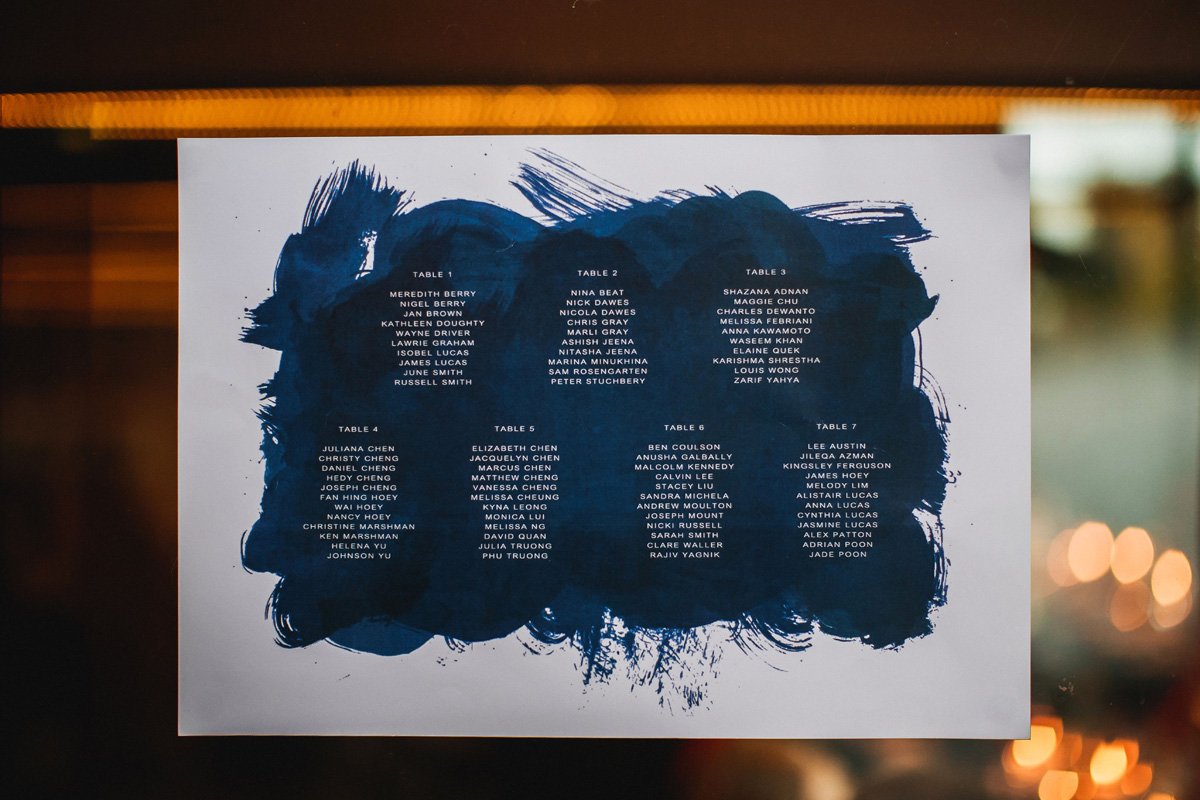 TABLE 1
MEREDITH BERRY
NIGEL BERRY
JAN BROWN
KATHLEEN DOUGHTY
WAYNE DRIVER
LAWRIE GRAHAM
ISOBEL LUCAS
JAMES LUCAS
JUNE SMITH
RUSSELL SMITH
TABLE 2
NINA BEAT
NICK DAWES
NICOLA DAWES
CHRIS GRAY
MARLI GRAY
ASHISH JEENA
NITASHA JEENA
MARINA MINUKHINA
SAM ROSENGARTEN
PETER STUCHBERY
TABLE 3
SHAZANA ADNAN
MAGGIE CHU
CHARLES DEWANTO
MELISSA FEBRIANI
ANNA KAWAMOTO
WASEEM KHAN
ELAINE QUEK
KARISHMA SHRESTHA
LOUIS WONG
ZARIF YAHYA
TABLE 4
JULIANA CHEN
CHRISTY CHENG
DANIEL CHENG
HEDY CHENG
JOSEPH CHENG
FAN HING HOEY
WAI HOEY
NANCY HOEY
CHRISTINE MARSHMAN
KEN MARSHMAN
HELENA YU
JOHNSON YU
TABLE 5
ELIZABETH CHEN
JACQUELYN CHEN
MARCUS CHEN
MATTHEW CHENG
VANESSA CHENG
MELISSA CHEUNG
KYNA LEONG
MONICA LUI
MELISSA NG
DAVID QUAN
JULIA TRUONG
PHU TRUONG
TABLE 6
BEN COULSON
ANUSHA GALBALLY
MALCOLM KENNEDY
CALVIN LEE
STACEY LIU
SANDRA MICHELA
ANDREW MOULTON
JOSEPH MOUNT
NICKI RUSSELL
SARAH SMITH
CLARE WALLER
RAJIV YAGNIK
TABLE 7
LEE AUSTIN
JILEQA AZMAN
KINGSLEY FERGUSON
JAMES HOEY
MELODY LIM
ALISTAIR LUCAS
ANNA LUCAS
CYNTHIA LUCAS
JASMINE LUCAS
ALEX PATTON
ADRIAN POON
JADE POON